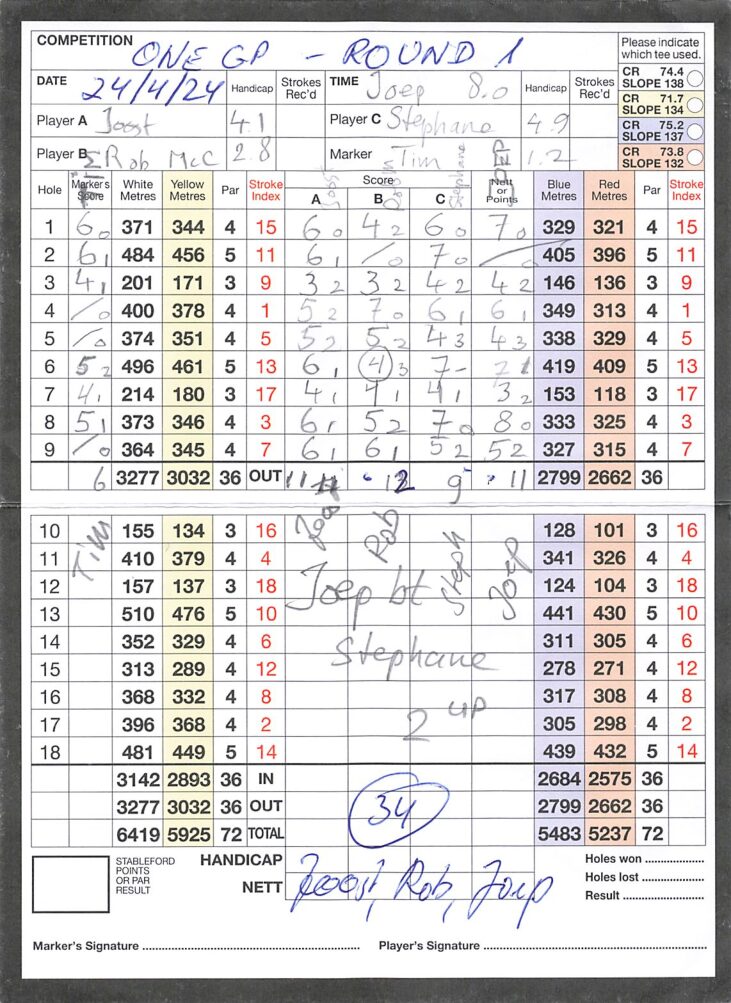 COMPETITION ONE GP - ROUND 1 Please indicate which tee used.
DATE 24/4/24 Handicap Strokes Rec'd TIME Joep 8.0 Handicap Strokes Rec'd CR 74.4 SLOPE 138
Player A Joost 4.1 Player C Stephane 4.9 CR 71.7 SLOPE 134
CR 75.2 SLOPE 137
Player B Rob McC 2.8 Marker Tim 1.2 CR 73.8 SLOPE 132
Hole Marker's Score White Metres Yellow Metres Par Stroke Index Score A B C Nett or Points Blue Metres Red Metres Par Stroke Index
Joost Stephane JOEP
1 6 0 371 344 4 15 6 0 4 2 6 0 7 0 329 321 4 15
2 6 1 484 456 5 11 6 1 / 0 7 0 405 396 5 11
3 4 1 201 171 3 9 3 2 3 2 4 2 4 2 146 136 3 9
4 / 0 400 378 4 1 5 2 7 0 6 1 6 1 349 313 4 1
5 / 0 374 351 4 5 5 2 5 2 4 3 4 3 338 329 4 5
6 5 2 496 461 5 13 6 1 4 3 7 - 419 409 5 13
7 4 1 214 180 3 17 4 1 4 1 4 1 3 2 153 118 3 17
8 5 1 373 346 4 3 6 1 5 2 7 0 8 0 333 325 4 3
9 / 0 364 345 4 7 6 1 6 1 5 2 5 2 327 315 4 7
6 3277 3032 36 OUT 11 12 9 11 2799 2662 36
Tim Joost Rob Steph Joep
10 155 134 3 16 128 101 3 16
11 410 379 4 4 341 326 4 4
12 157 137 3 18 Joep bt 124 104 3 18
13 510 476 5 10 441 430 5 10
14 352 329 4 6 Stephane 311 305 4 6
15 313 289 4 12 278 271 4 12
16 368 332 4 8 317 308 4 8
17 396 368 4 2 2 UP 305 298 4 2
18 481 449 5 14 439 432 5 14
3142 2893 36 IN 2684 2575 36
3277 3032 36 OUT 34 2799 2662 36
6419 5925 72 TOTAL 5483 5237 72
STABLEFORD POINTS OR PAR RESULT HANDICAP Holes won
Holes lost
NETT Joost, Rob, Joep Result
Marker's Signature Player's Signature